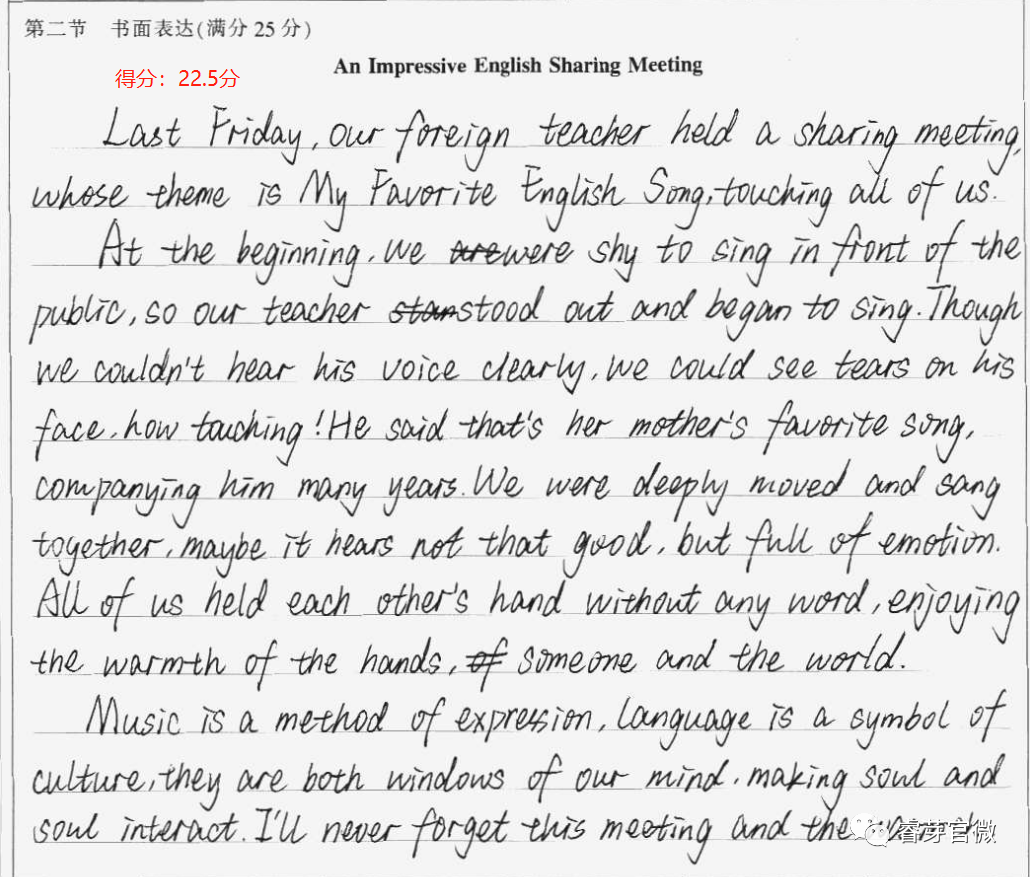 第二节 书面表达(满分25分)
得分：22.5分
An Impressive English Sharing Meeting
Last Friday, our foreign teacher held a sharing meeting,
whose theme is My Favorite English Song, touching all of us.
At the beginning, we are were shy to sing in front of the
public, so our teacher stan stood out and began to sing. Though
we couldn't hear his voice clearly, we could see tears on his
face, how touching! He said that's her mother's favorite song,
companying him many years. We were deeply moved and sang
together, maybe it hears not that good, but full of emotion.
All of us held each other's hand without any word, enjoying
the warmth of the hands, of someone and the world.
Music is a method of expression, language is a symbol of
culture, they are both windows of our mind, making soul and
soul interact. I'll never forget this meeting and the
睿芽官微